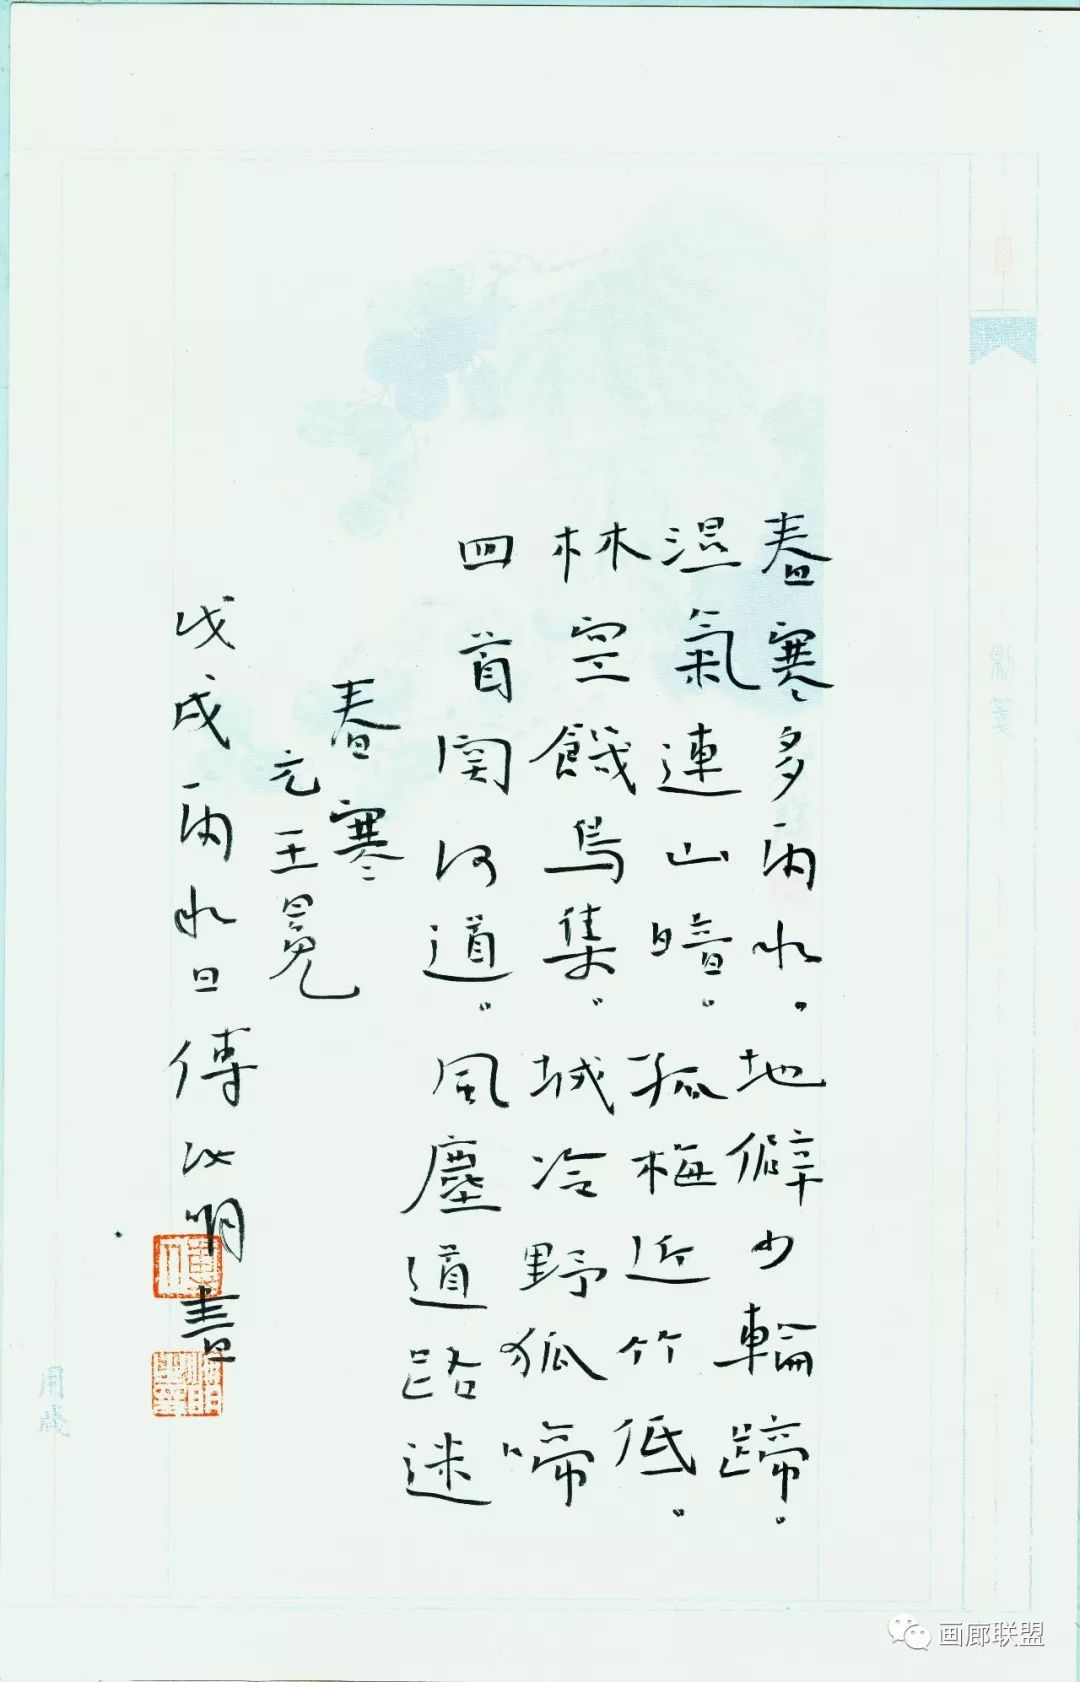 春寒多雨水。地僻少輪蹄。
湿氣連山暗。孤梅近竹低。
林空饑鳥集。城冷野狐啼
四首関河道。風塵道路迷
春寒
元王冕
戊戌雨水日傅以明書
用箋
画廊联盟